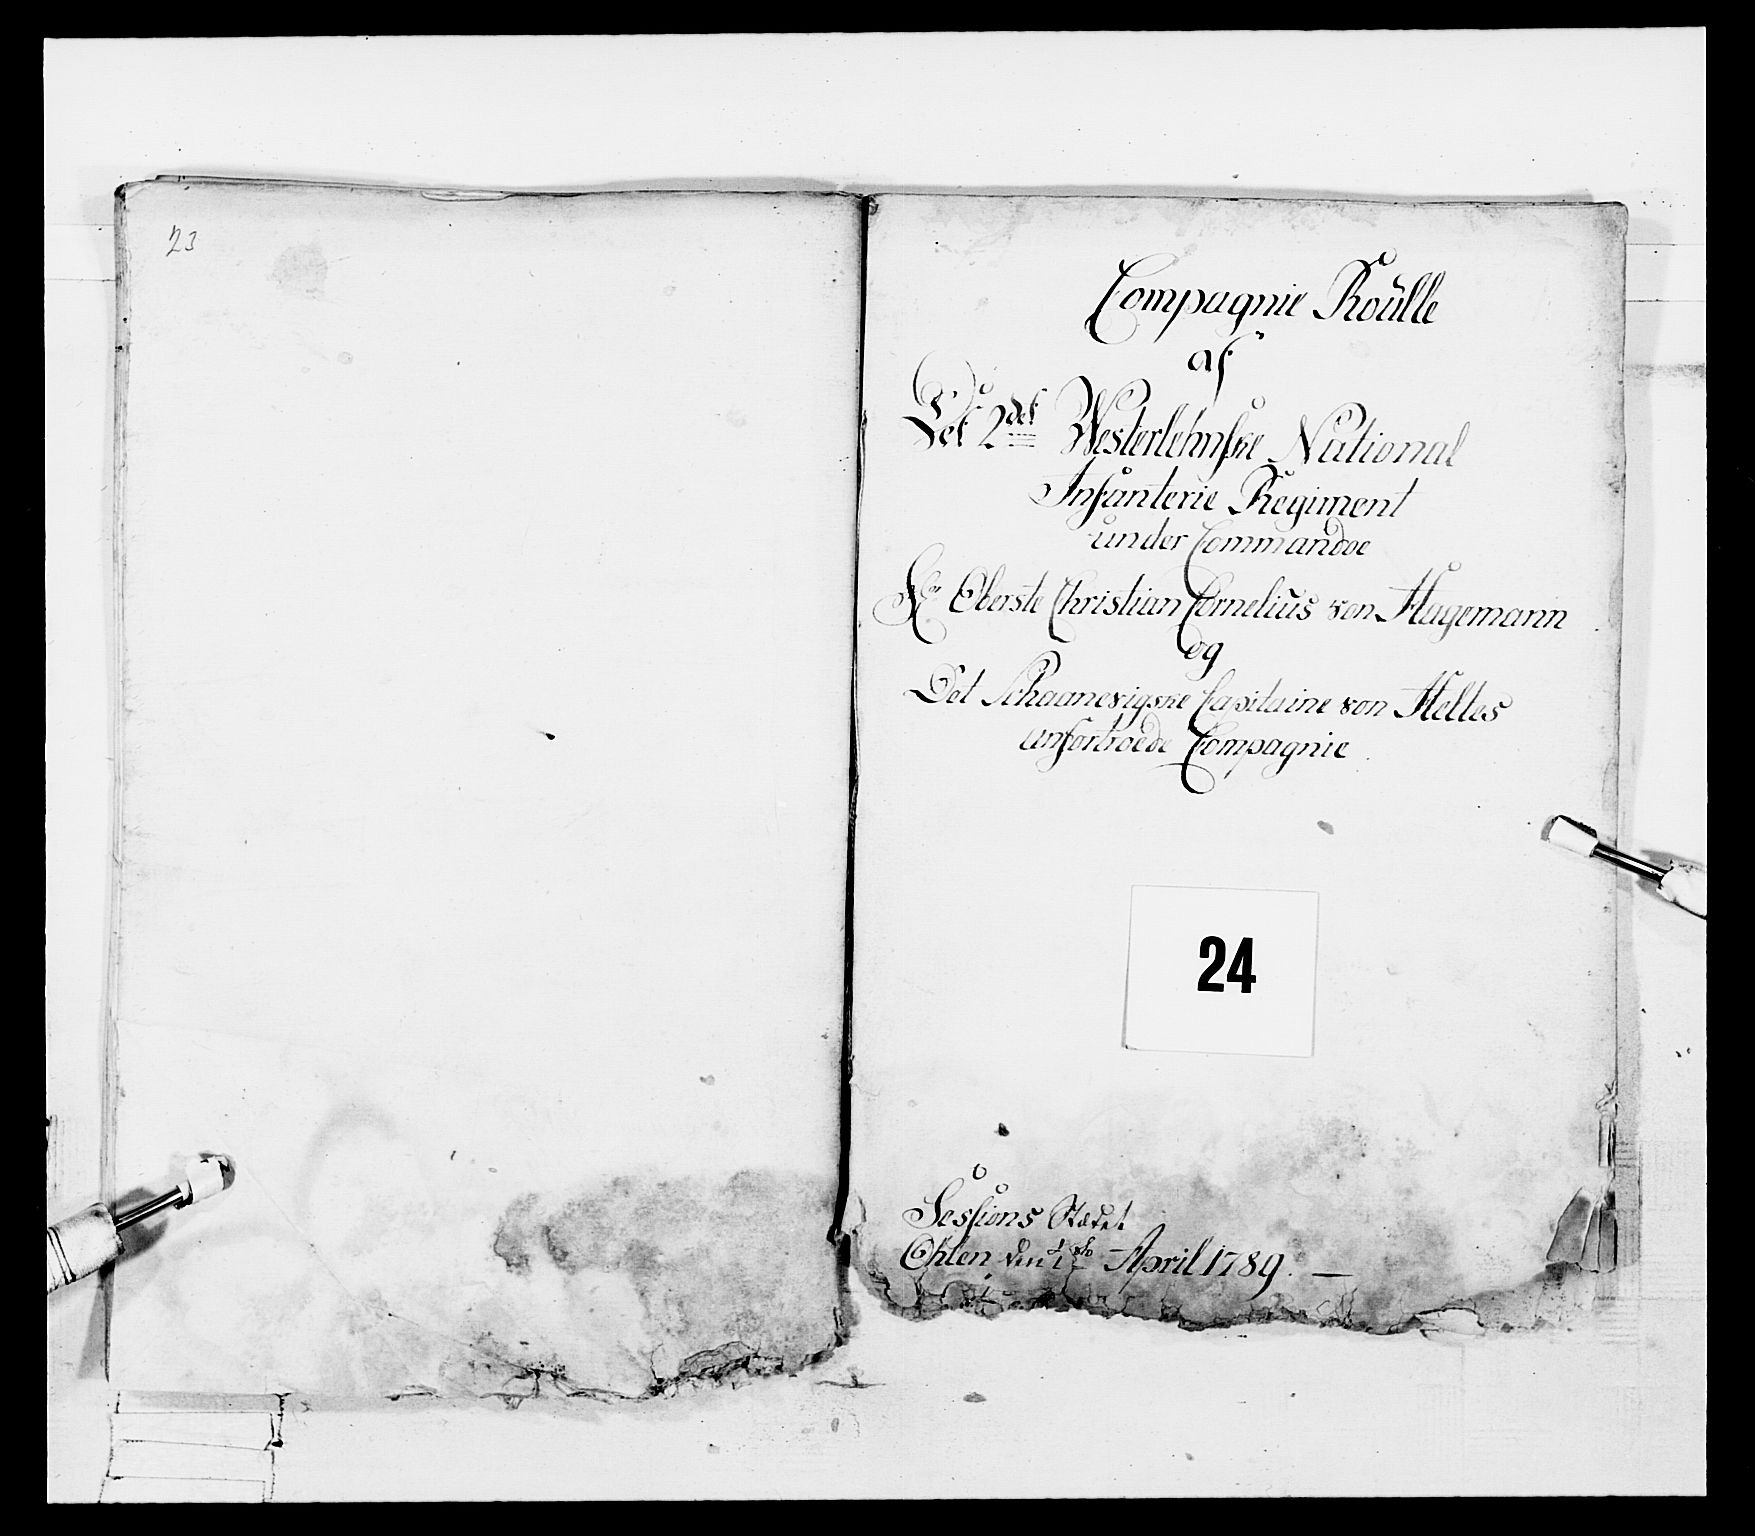 23
Compagnie Roülle
af
Det 2det Westerlehnske National
Infanterie Regiment
under Commandoe
Hr Oberste Christian Cornelius von Hagemann
og
Det Schaanevigske Capitaine von Heltes
anfortroede Compagnie
24
Sessions Stædet
Øhlen den April 1789.